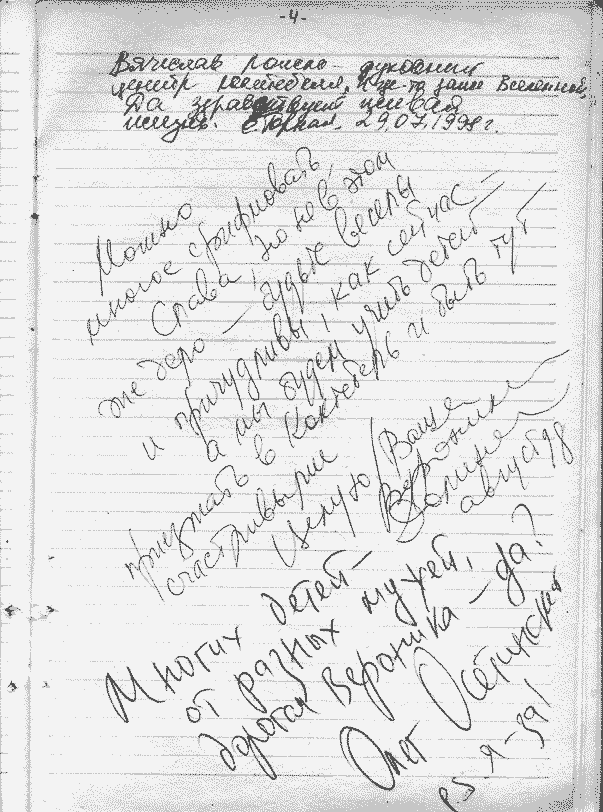 -4-
Вячеслав Ложко – духовный
центр Коктебеля, и где-то даже Вселенной,
Да здравствует целая
жизнь. 29.07.1998г.
Можно
многое срифмовать
Слава, но не в этом
же дело — будьте веселы
и причудливы, как сейчас —
а мы будем учить детей —
приезжать в Коктебель и быть тут
счастливыми
Целую / Ваша
Вероника
Долина
август 98
Многих детей —
от разных мужей,
дорогая Вероника — да?
Олег Осетинский
PS Я – за!